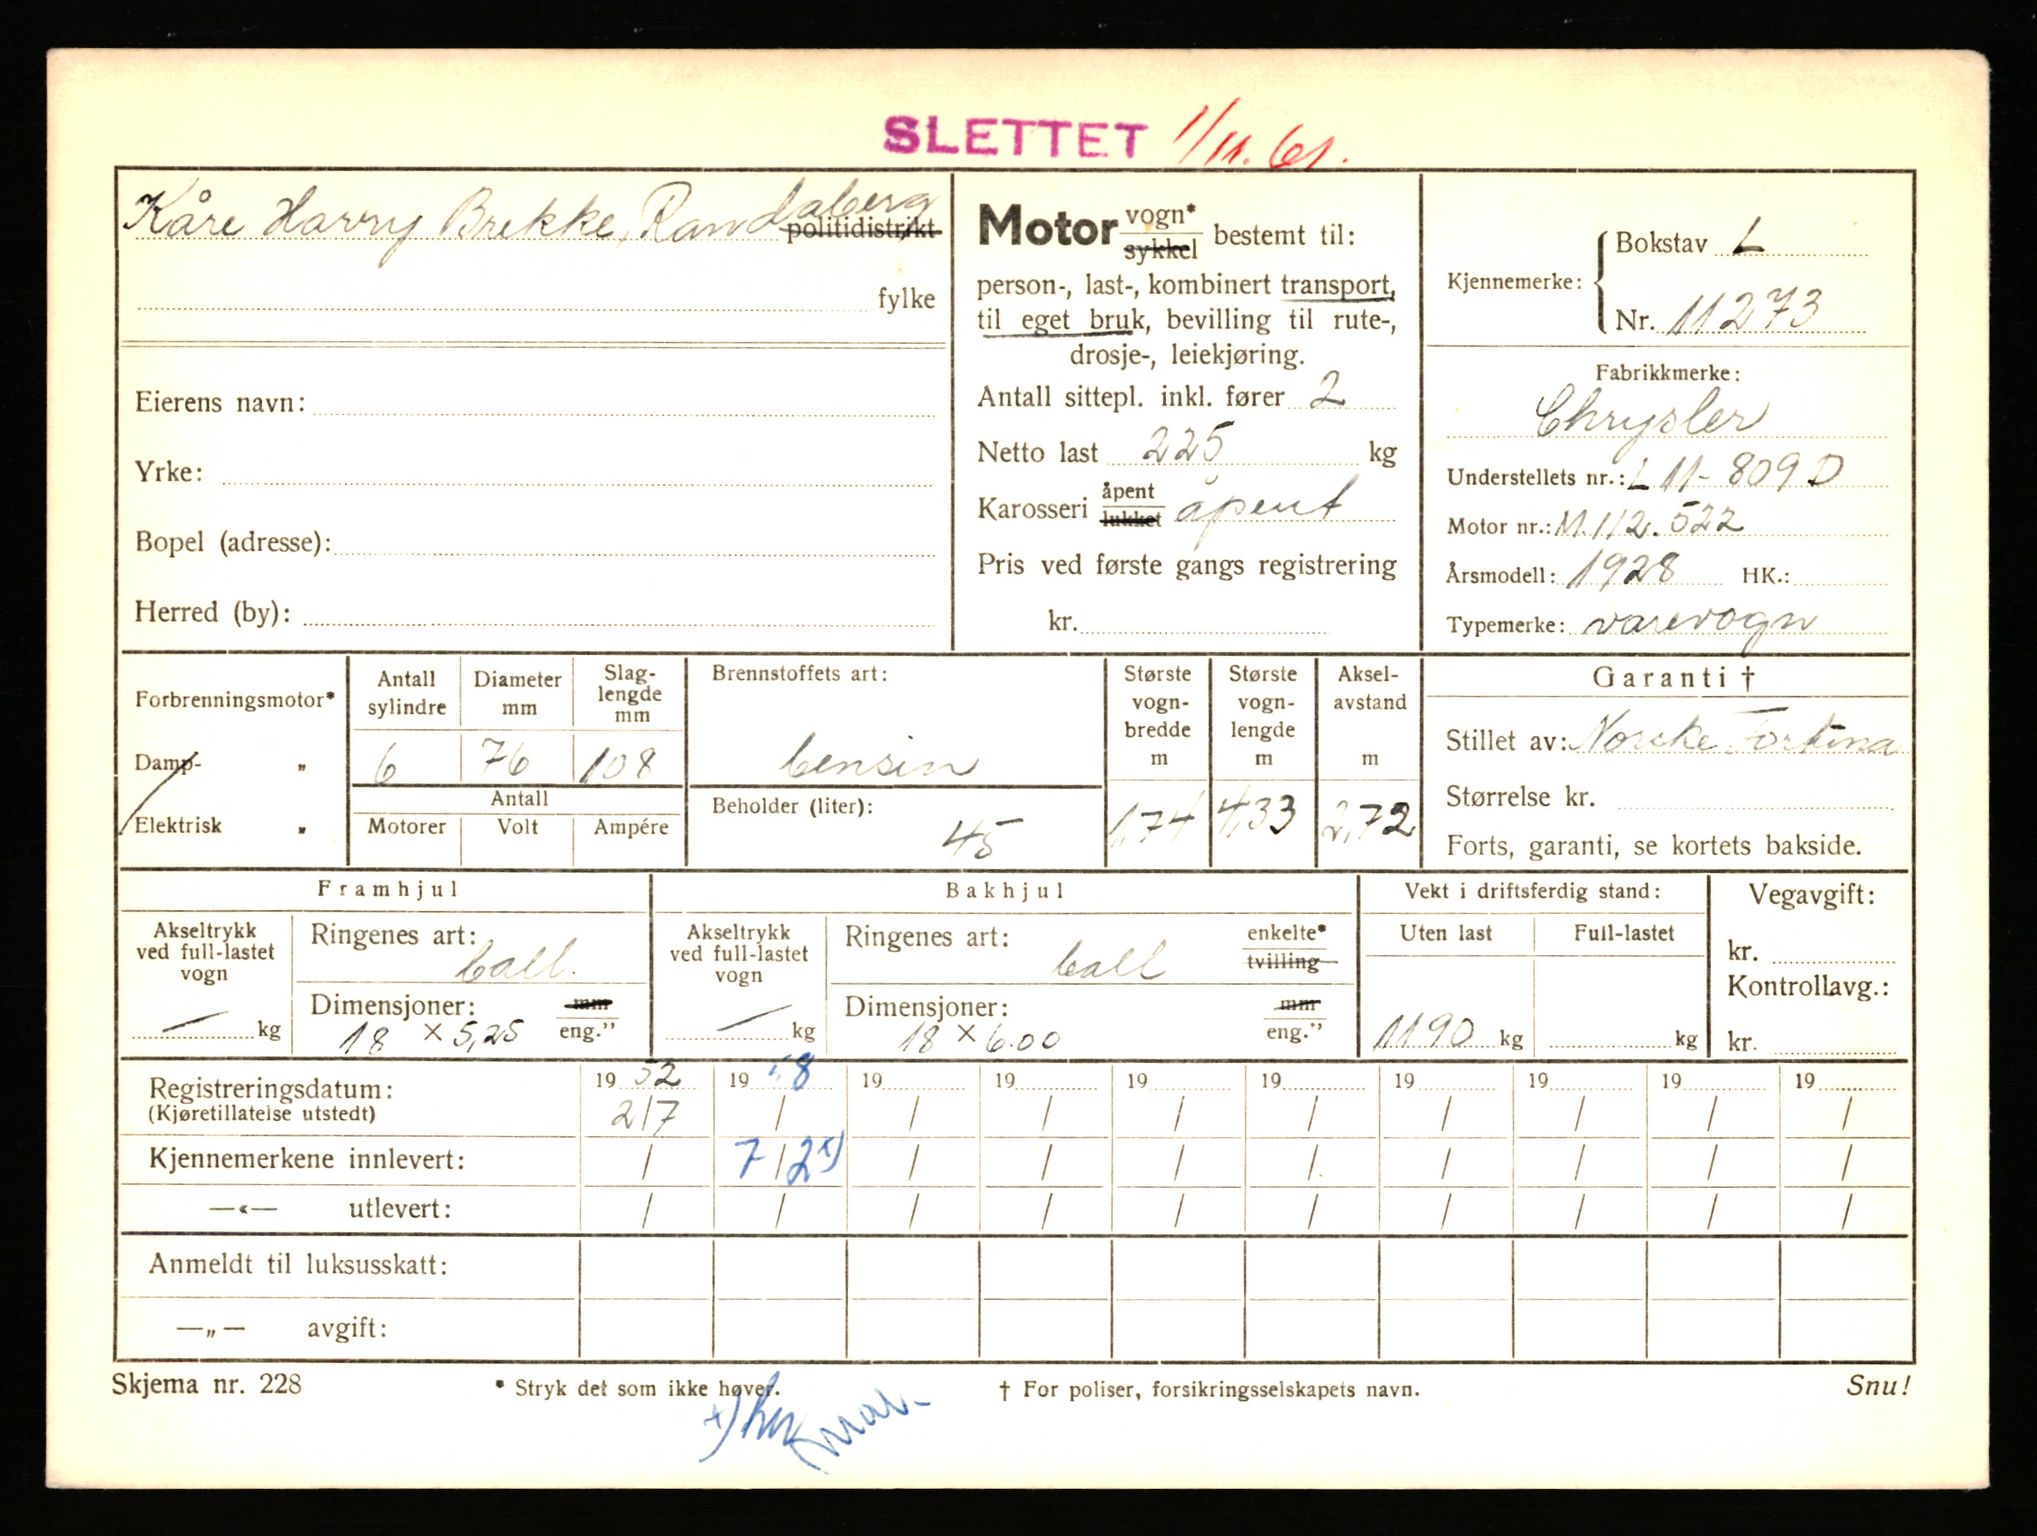 SLETTET 1/11.61.
Kåre Harry Brekke, Randaberg politidistrikt
fylke
Eierens navn:
Yrke:
Bopel (adresse):
Herred (by):
Motor vogn* sykkel bestemt til:
person-, last-, kombinert transport,
til eget bruk, bevilling til rute-,
drosje-, leiekjøring.
Antall sittepl. inkl. fører 2
Netto last 225 kg
Karosseri åpent lukket åpent
Pris ved første gangs registrering
kr.
Kjennemerke: Bokstav L
Nr. 11273
Fabrikkmerke:
Chrysler
Understellets nr.: L 11-809 D
Motor nr.: M.112.522
Årsmodell: 1928 HK.:
Typemerke: varevogn
Forbrenningsmotor*
Damp- „
Elektrisk „
Antall sylindre
Diameter mm
Slag-lengde mm
6 76 108
Antall
Motorer Volt Ampére
Brennstoffets art:
bensin
Beholder (liter):
45
Største vogn-bredde m
1,74
Største vogn-lengde m
4,33
Aksel-avstand m
2,72
Garanti †
Stillet av: Norske Fortuna
Størrelse kr.
Forts, garanti, se kortets bakside.
Framhjul
Akseltrykk ved full-lastet vogn
— kg
Ringenes art:
ball.
Dimensjoner: mm
18 × 5,25 eng.”
Bakhjul
Akseltrykk ved full-lastet vogn
— kg
Ringenes art: enkelte*
ball tvilling
Dimensjoner: mm
18 × 6.00 eng.”
Vekt i driftsferdig stand:
Uten last Full-lastet
1190 kg kg
Vegavgift:
kr.
Kontrollavg.:
kr.
Registreringsdatum: 19 52 19 58 19 19 19 19 19 19 19 19
(Kjøretillatelse utstedt) 2/7 / / / / / / / / /
Kjennemerkene innlevert: / 7/2 x) / / / / / / / /
—«— utlevert: / / / / / / / / / /
Anmeldt til luksusskatt:
—„— avgift:
Skjema nr. 228 * Stryk det som ikke høver. † For poliser, forsikringsselskapets navn. Snu!
x)